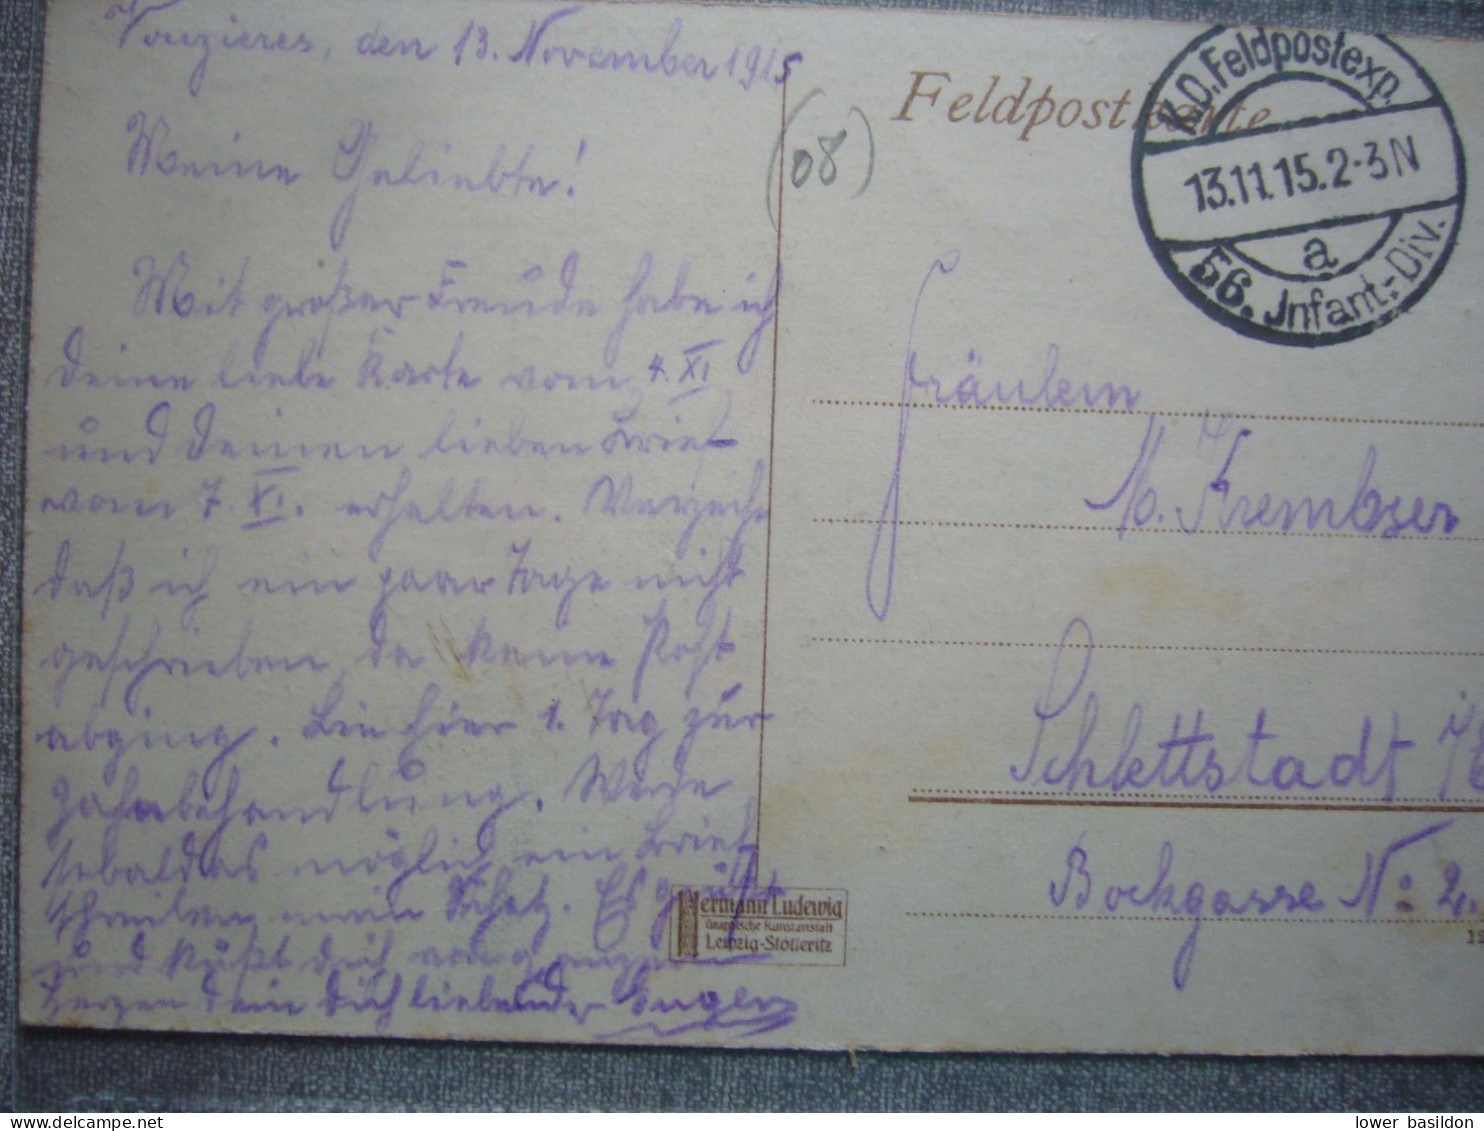 Vouzieres, den 13. November 1915
Meine Geliebte!
Mit großer Freude habe ich
deine liebe Karte vom 4. XI
und deinen lieben Brief
vom 7. XI. erhalten. Verzeih
daß ich ein paar Tage nicht
geschrieben, da keine Post
abging. Bin hier 1. Tag zur
Zahnbehandlung. Werde
sobald als möglich ein Brief
schreiben mein Schatz. Es grüßt
und küßt dich von ganzem
Herzen dein dich liebender Eugen
(08)
Feldpostkarte
K.D. Feldpostexp.
13.11.15. 2-3 N
a
56. Infant.-Div.
Fräulein
M. Krembser
Schlettstadt i/E
Bockgasse No: 2
Hermann Ludewig
Graphische Kunstanstalt
Leipzig-Stötteritz
lower basildon